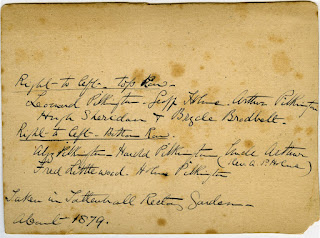 Right to left - top Row -
Leonard Pilkington - Geoff Holme - Arthur Pilkington
Hugh Sheridan & Brodbelt.
Right to left - Bottom Row.
Alex Pilkington - Harold Pilkington - Uncle Arthur
(Rev. A.
Fred Littlewood. Holme Pilkington
Taken in Tattenhall Rectory Garden -
About 1879.